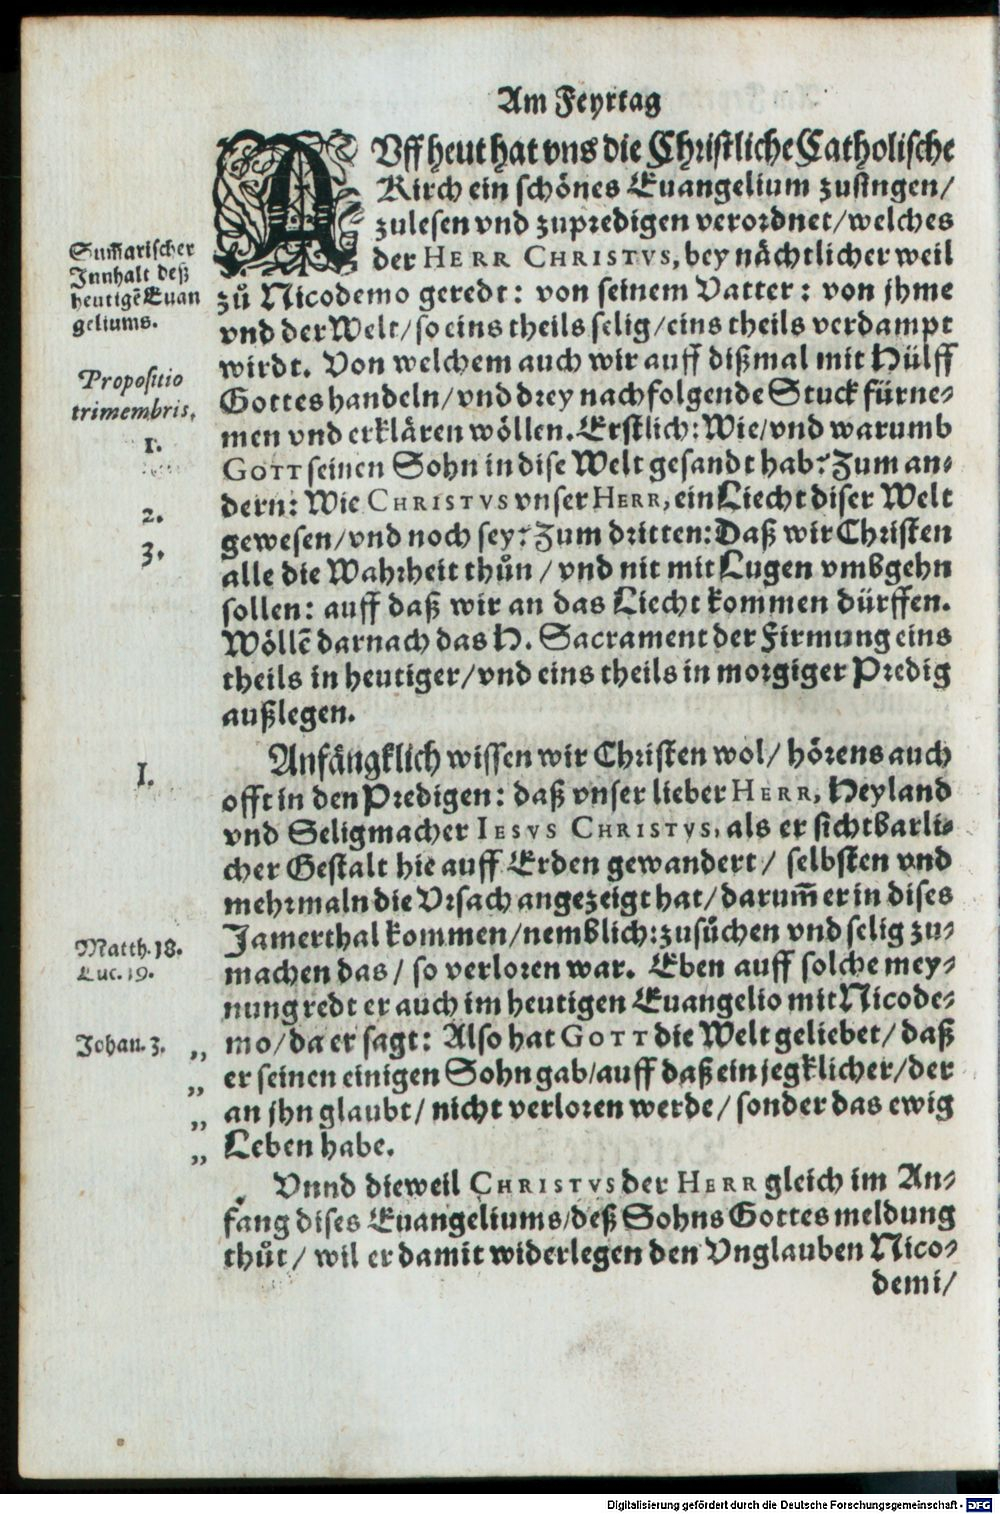 Am Feyrtag
AUff heut hat vns die Christliche Catholische
Kirch ein schönes Euangelium zusingen/
zulesen vnd zupredigen verordnet/welches
der HERR CHRISTVS, bey nächtlicher weil
zů Nicodemo geredt: von seinem Vatter: von jhme
vnd der Welt/so eins theils selig/eins theils verdampt
wirdt. Von welchem auch wir auff dißmal mit Hülff
Gottes handeln/vnd drey nachfolgende Stuck fürne-
men vnd erklären wöllen. Erstlich: Wie/vnd warumb
GOTT seinen Sohn in dise Welt gesandt hab? Zum an-
dern: Wie CHRISTVS vnser HERR, ein Liecht diser Welt
gewesen/vnd noch sey? Zum dritten: Daß wir Christen
alle die Wahrheit thůn/vnd nit mit Lugen vmbgehn
sollen: auff daß wir an das Liecht kommen dürffen.
Wöllē darnach das H. Sacrament der Firmung eins
theils in heutiger/vnd eins theils in morgiger Predig
außlegen.
Summarischer
Innhalt deß
heutigē Euan
geliums.
Propositio
trimembris.
1.
2.
3.
Anfängklich wissen wir Christen wol/ hörens auch
offt in den Predigen: daß vnser lieber HERR, Heyland
vnd Seligmacher IESVS CHRISTVS, als er sichtbarli-
cher Gestalt hie auff Erden gewandert/ selbsten vnd
mehrmaln die Vrsach angezeigt hat/darum̄ er in dises
Jamerthal kommen/nemblich: zusůchen vnd selig zu-
machen das/ so verloren war. Eben auff solche mey-
nung redt er auch im heutigen Euangelio mit Nicode-
mo/da er sagt: Also hat GOTT die Welt geliebet/ daß
er seinen einigen Sohn gab/auff daß ein jegklicher/der
an jhn glaubt/ nicht verloren werde/ sonder das ewig
Leben habe.
I.
Matth. 18.
Luc. 19.
Johan. 3. „
„
„
„
Vnnd dieweil CHRISTVS der HERR gleich im An-
fang dises Euangeliums/deß Sohns Gottes meldung
thůt/ wil er damit widerlegen den Vnglauben Nico-
demi/
Digitalisierung gefördert durch die Deutsche Forschungsgemeinschaft - DFG